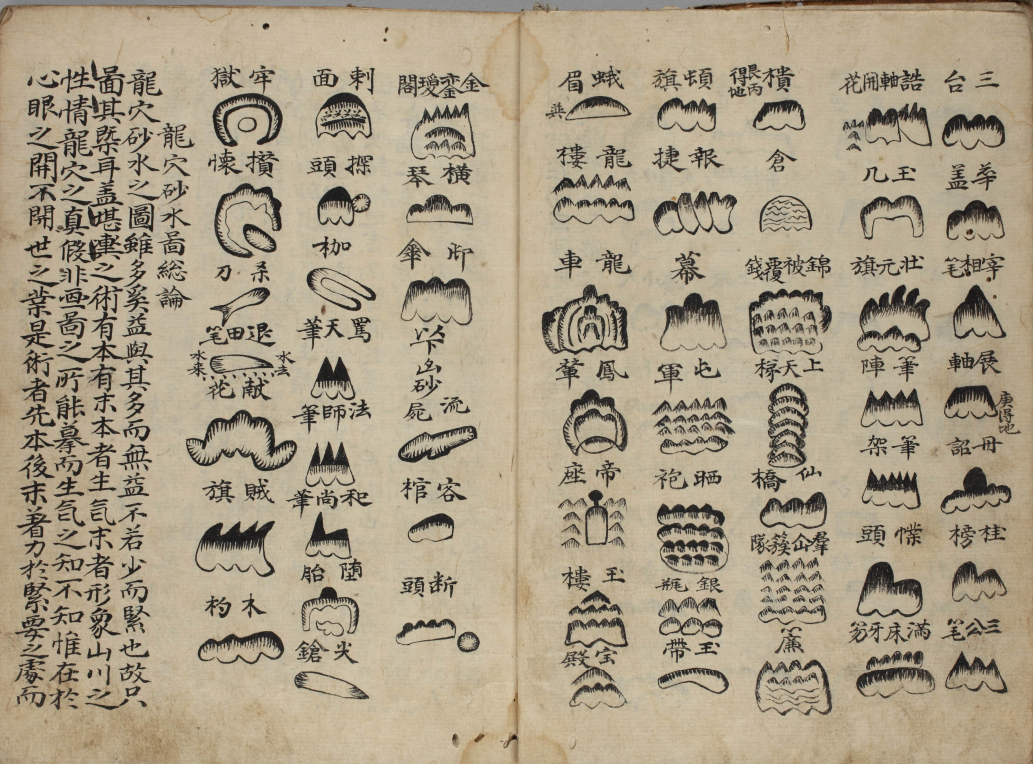 三台
華盖
宰相笔
展軸
庚得地
丹詔
桂榜
三公笔
誥軸開花
玉几
壮元旗
筆陣
筆架
幞頭
滿床牙笏
樻
艮丙得地
倉
錦被覆錢
上天梯
仙橋
羣仙簇隊
簾
頓旗
報捷
幕
屯軍
晒袍
銀瓶
玉帶
蛾眉
龍樓
龍車
鳳輦
帝座
玉樓
宝殿
金鑾瓊閣
横琴
御傘
以下凶砂
流屍
客棺
断頭
刺面
探頭
枷
罵天筆
法師筆
和尚筆
堕胎
尖鎗
牢獄
攢懷
杀刀
退田笔
水去
水来
献花
賊旗
木杓
龍穴砂水啚総論
龍穴砂水之圖雖多奚益與其多而無益不若少而緊也故只
啚其槩耳盖堪輿之術有本有末本者生気末者形象山川之
性情龍穴之真假非画啚之所能摹而生気之知不知惟在於
心眼之開不開世之業是術者先本後末著力於緊要之處而